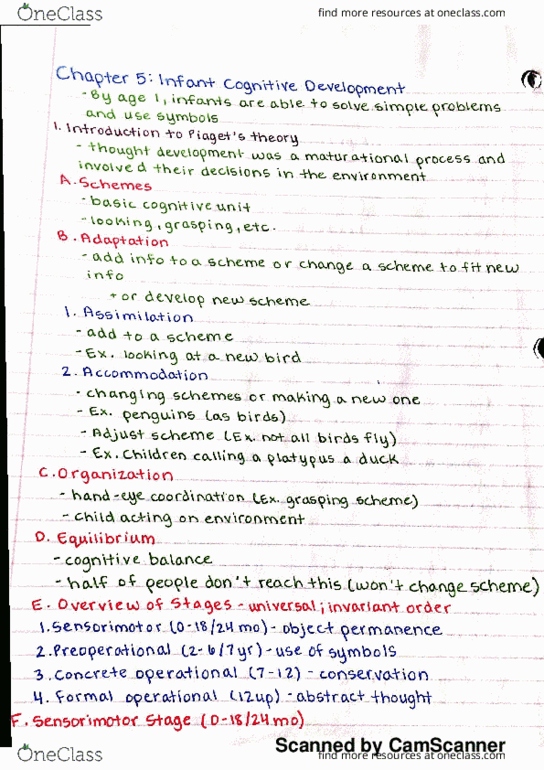 OneClass
find more resources at oneclass.com
Chapter 5: Infant Cognitive Development
- By age 1, infants are able to solve simple problems
and use symbols
1. Introduction to Piaget's theory
- thought development was a maturational process and
involved their decisions in the environment
A. Schemes
- basic cognitive unit
- looking, grasping, etc.
B. Adaptation
- add info to a scheme or change a scheme to fit new
info
+ or develop new scheme
1. Assimilation
- add to a scheme
- Ex. looking at a new bird
2. Accommodation
- changing schemes or making a new one
- Ex. penguins (as birds)
- Adjust scheme (Ex. not all birds fly)
- Ex. Children calling a platypus a duck
C. Organization
- hand-eye coordination (Ex. grasping scheme)
- child acting on environment
D. Equilibrium
- cognitive balance
- half of people don't reach this (won't change scheme)
E. Overview of Stages - universal; invariant order
1. Sensorimotor (0-18/24 mo) - object permanence
2. Preoperational (2-6/7yr) - use of symbols
3. Concrete operational (7-12) - conservation
4. Formal operational (12up) - abstract thought
F. Sensorimotor Stage (0-18/24 mo)
Scanned by CamScanner
OneClass
find more resources at oneclass.com